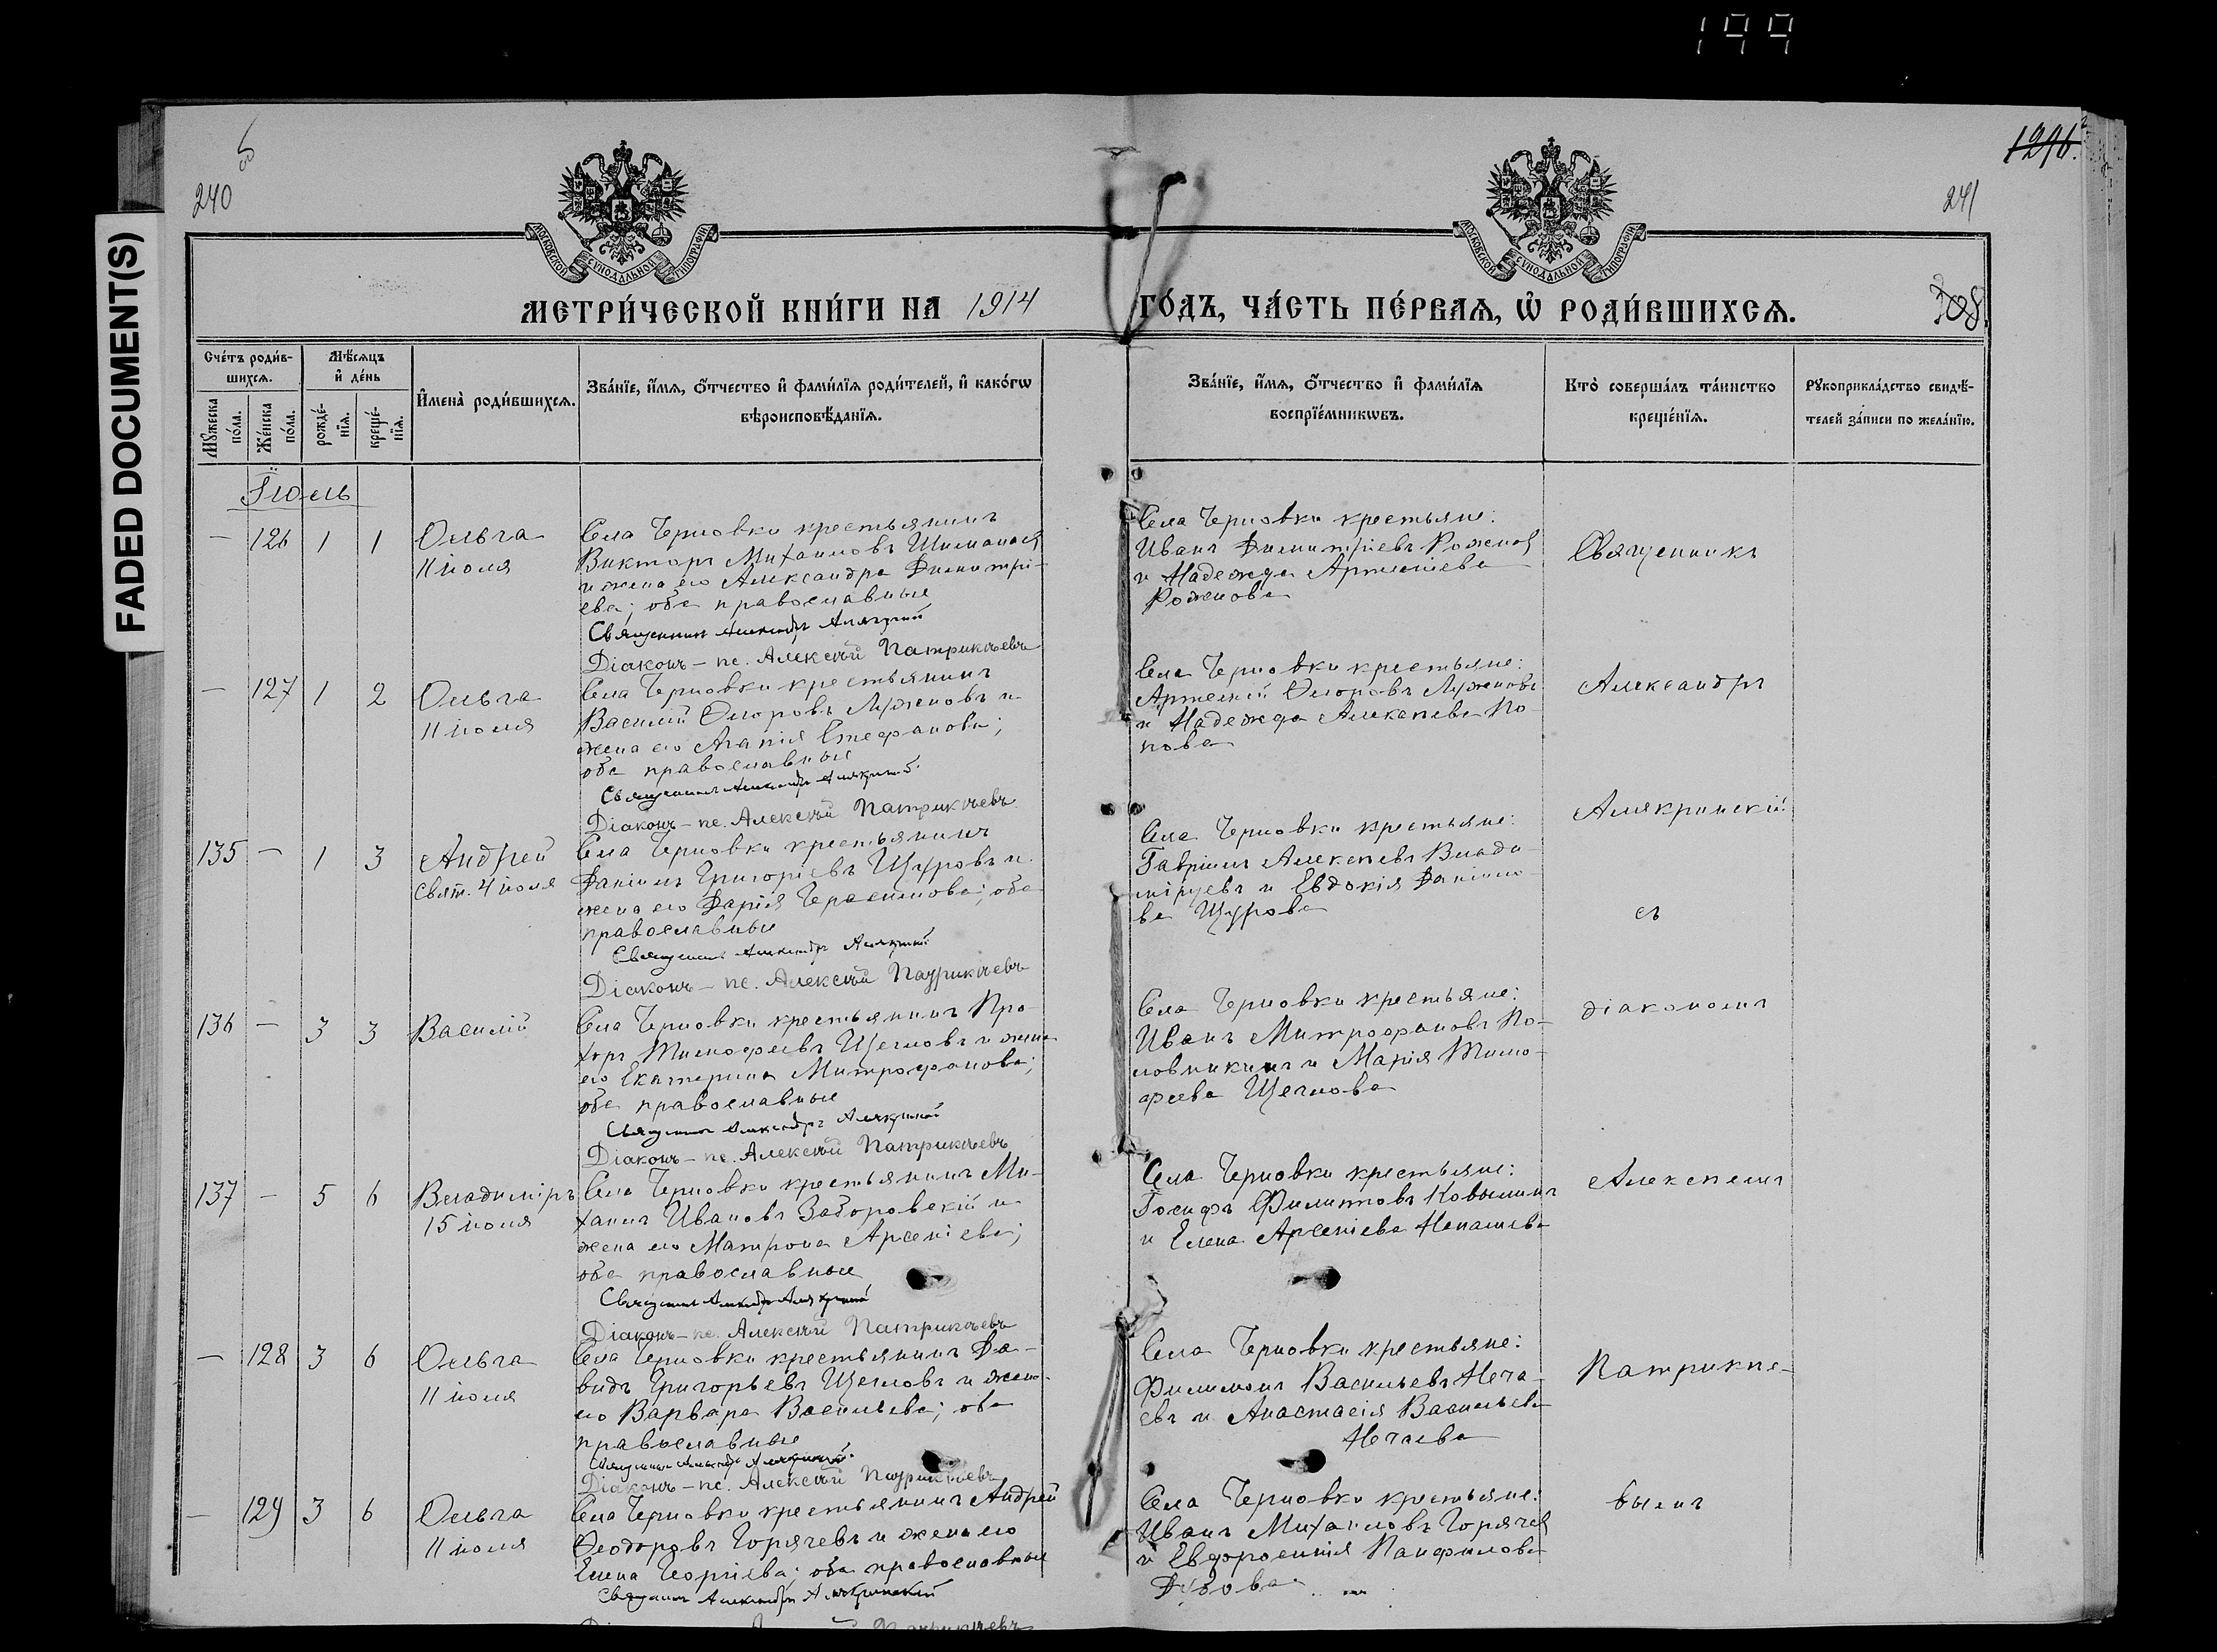 199
FADED DOCUMENT(S)
240
1296.
241
МОСКОВСКОЙ СѴНОДАЛЬНОЙ ТИПОГРАФІИ
МОСКОВСКОЙ СѴНОДАЛЬНОЙ ТИПОГРАФІИ
МЕТРИ́ЧЕСКОЙ КНИ́ГИ НА 1914 ГО́ДЪ, ЧА́СТЬ ПЕ́РВАѦ, Ѡ҆ РОДИ́ВШИХСѦ.
308
Сче́тъ роди́в-
шихсѧ.
Мꙋ́жеска по́ла.
Же́нска по́ла.
Мѣ́сѧцъ
и҆ де́нь
рожде́-
нїѧ.
креще́-
нїѧ.
И҆мена̀ роди́вшихсѧ.
Зва́нїе, и҆́мѧ, ѻ҆́тчество и҆ фами́лїѧ роди́телей, и҆ како́гѡ
вѣроисповѣ́данїѧ.
Зва́нїе, и҆́мѧ, ѻ҆́тчество и҆ фами́лїѧ
воспрїе́мникѡвъ.
Кто̀ соверша́лъ та́инство
креще́нїѧ.
Рꙋкоприкла́дство свидѣ́-
телей за́писи по жела́нїю.
Іюль
— 126 1 1 Ольга
11 іюля
Села Черновки крестьянинъ
Викторъ Михаиловъ
и жена его Александра Димитрі-
ева; оба православные
Священникъ Александръ Алякринскій
Діаконъ - пс. Алексѣй Патрикѣевъ
Села Черновки крестьяне:
Иванъ Димитріевъ Роженовъ
и Надежда Артеміева
Роженова
Священникъ
— 127 1 2 Ольга
11 іюля
Села Черновки крестьянинъ
Василій Ѳедоровъ Лужновъ и
жена его Агапія Стефанова;
оба православные
Священникъ Александръ Алякринскій
Діаконъ - пс. Алексѣй Патрикѣевъ
Села Черновки крестьяне:
Артемій Ѳедоровъ Лужновъ
и Надежда Алексѣева По-
пова
Александръ
135 — 1 3 Андрей
Свят. 4 іюля
Села Черновки крестьянинъ
Даніилъ Григорьевъ Щуровъ и
жена его Дарія Герасимова; оба
православные
Священникъ Александръ Алякринскій
Діаконъ - пс. Алексѣй Патрикѣевъ
Села Черновки крестьяне:
Гавріилъ Алексѣевъ Влади-
мірцевъ и Евдокія Даніило-
ва Щурова
Алякринскій
съ
136 — 3 3 Василій
Села Черновки крестьянинъ Про-
хоръ Тимофеевъ Щегловъ и жена
его Екатерина Митрофанова;
оба православные
Священникъ Александръ Алякринскій
Діаконъ - пс. Алексѣй Патрикѣевъ
Села Черновки крестьяне:
Иванъ Митрофановъ По-
ловинкинъ и Марія Тимо-
феева Щеглова
діакономъ
137 — 5 6 Владиміръ
15 іюля
Села Черновки крестьянинъ Ми-
хаилъ Ивановъ Заборовскій и
жена его Матрона Арсеніева;
оба православные
Священникъ Александръ Алякринскій
Діаконъ - пс. Алексѣй Патрикѣевъ
Села Черновки крестьяне:
Іосифъ Филипповъ Ковылинъ
и Елена Арсеніева Ненашева
Алексѣемъ
— 128 3 6 Ольга
11 іюля
Села Черновки крестьянинъ Да-
видъ Григорьевъ Щегловъ и жена
его Варвара Васильева; оба
православные
Священникъ Александръ Алякринскій
Діаконъ - пс. Алексѣй Патрикѣевъ
Села Черновки крестьяне:
Филимонъ Васильевъ Неча-
евъ и Анастасія Васильева
Нечаева
Патрикѣе-
— 129 3 6 Ольга
11 іюля
Села Черновки крестьянинъ Андрей
Ѳеодоровъ Горячевъ и жена его
Елена Георгіева; оба православные
Священникъ Александръ Алякринскій
Села Черновки крестьяне:
Иванъ Михаиловъ Горячевъ
и Евфросинія Панфилова
Дубова
вымъ